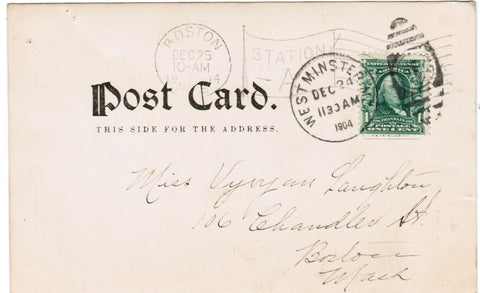 BOSTON
DEC 25
10-AM
STATION
A
WESTMINSTER
DEC 24
1130AM
1904
1 1
POSTAGE
ONE CENT
Post Card.
THIS SIDE FOR THE ADDRESS.
Miss Vyvyan Laughton
106 Chandler St.
Boston
Mass